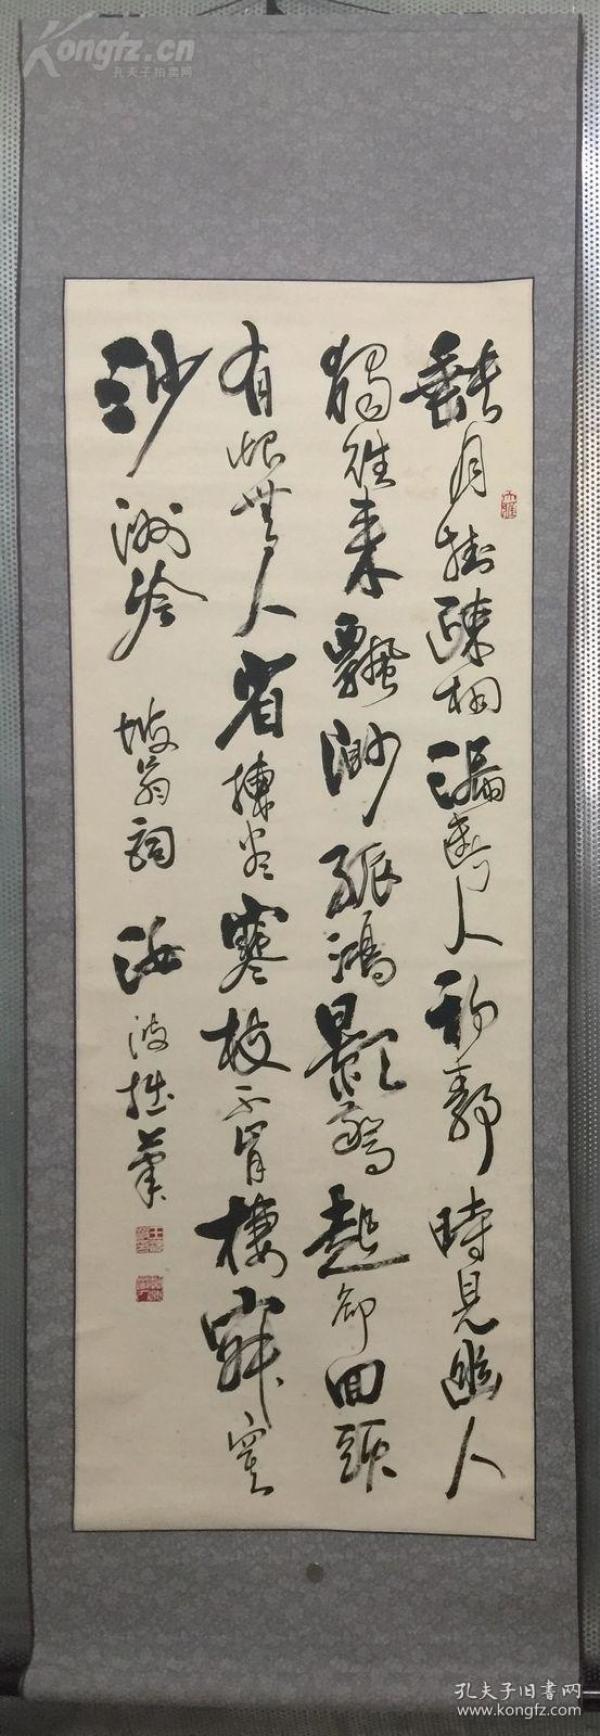 Kongfz.cn
孔夫子拍卖网
缺月掛疎桐漏斷人初靜時見幽人
獨往來飄渺孤鴻影驚起卻回頭
有恨無人省揀盡寒枝不肯棲寂寞
沙洲冷 坡翁詞 汝波拙筆
孔夫子旧书网
www.kongfz.com